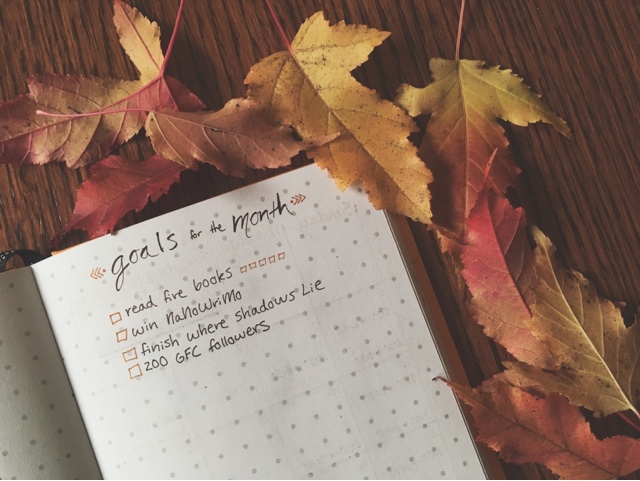 goals for the month
read five books
win NaNoWriMo
finish where shadows Lie
200 GFC followers